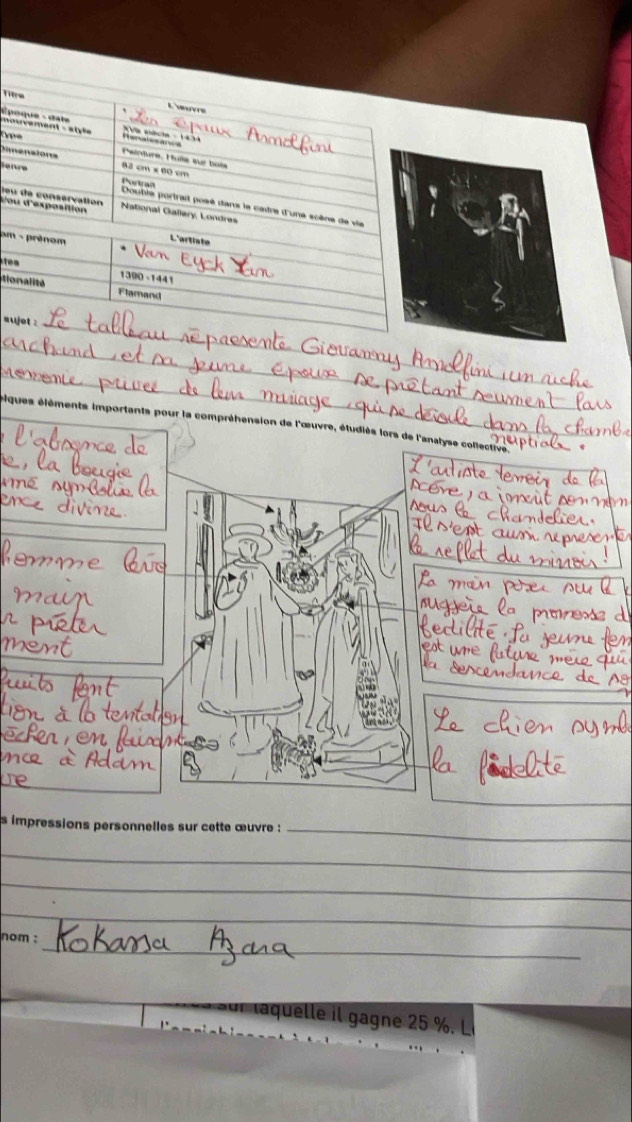 Titre
L'œuvre
Les époux Arnolfini
Époque - date
mouvement - style
XVe siècle - 1434
Renaissance
Type
Peinture, Huile sur bois
Dimensions
82 cm x 60 cm
Genre
Portrait
Double portrait posé dans le cadre d'une scène de vie
ieu de conservation
/ou d'exposition
National Gallery, Londres
L'artiste
om - prénom
Van Eyck Yan
tes
1390 - 1441
tionalité
Flamand
sujet : Le tableau représente Giovanny Arnolfini, un riche
archand, et sa jeune épouse se prêtant serment lors
privée de leur mariage, qui se déroule dans la chambre
nuptiale.
elques éléments importants pour la compréhension de l'œuvre, étudiés lors de l'analyse collective.
l'absence de
e, la bougie
mé symbolise la
ence divine.
L'artiste témoin de la
scène, a inscrit son nom
sous le chandelier.
Il s'est aussi représenter
le reflet du miroir !
homme lève
main
prêter
ment
La main posée su l
suggère la promesse d
fertilité. La jeune fem
est une future mère qui
la descendance de so
ruits font
tion à la tentation
écher, en faisant
nce à Adam
ve
Le chien symb
la fidelité
s impressions personnelles sur cette œuvre :
nom : Kokarsa Azara
sur laquelle il gagne 25 %. L